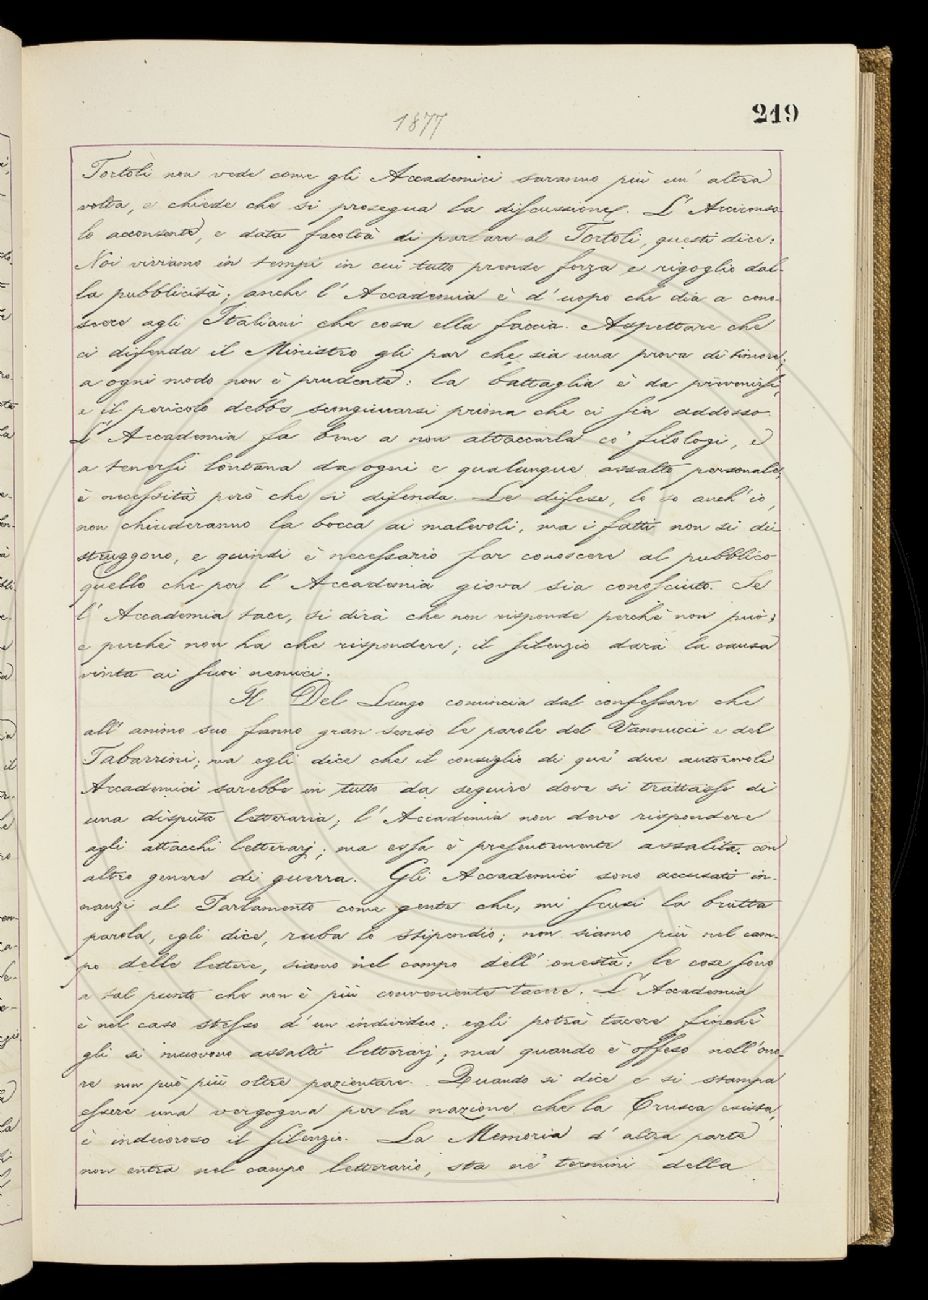 1877
219
Tortoli non vede come gli Accademici saranno più un' altra
volta, e chiede che si prosegua la discussione. L' Arciconsolo
lo acconsente, e data facoltà di parlare al Tortoli, questi dice:
Noi viviamo in tempi in cui tutto prende forza e rigoglio dal-
la pubblicità; anche l' Accademia è d' uopo che dia a cono-
scere agli Italiani che cosa ella faccia. Aspettare che
ci difenda il Ministro gli par che sia una prova di timore;
a ogni modo non è prudente: la battaglia è da prevenirsi,
e il pericolo debbe scongiurarsi prima che ci sia addosso.
L' Accademia fa bene a non attaccarla co' filologi, e
a tenersi lontana da ogni e qualunque assalto personale;
è necessità però che si difenda. Le difese, lo so anch' io,
non chiuderanno la bocca ai malevoli, ma i fatti non si di-
struggono, e quindi è necessario far conoscere al pubblico
quello che per l' Accademia giova sia conosciuto. Se
l' Accademia tace, si dirà che non risponde perchè non può;
e perchè non ha che rispondere; il silenzio darà la causa
vinta ai suoi nemici.
Il Del Lungo comincia dal confessare che
all' animo suo fanno gran senso le parole del Vannucci e del
Tabarrini; ma egli dice che il consiglio di que' due autorevoli
Accademici sarebbe in tutto da seguire dove si trattasse di
una disputa letteraria; l' Accademia non deve rispondere
agli attacchi letterarj; ma essa è presentemente assalita con
altro genere di guerra. Gli Accademici sono accusati in-
nanzi al Parlamento come gente che, mi scusi la brutta
parola, egli dice, ruba lo stipendio; non siamo più nel cam-
po delle lettere, siamo nel campo dell' onestà: le cose sono
a tal punto che non è più conveniente tacere. L' Accademia
è nel caso stesso d' un individuo: egli potrà tacere finchè
gli si muovono assalti letterarj; ma quando è offeso nell' ono-
re non può più oltre pazientare. Quando si dice e si stampa
essere una vergogna per la nazione che la Crusca esista,
è indecoroso il silenzio. La Memoria d' altra parte
non entra nel campo letterario, sta ne' termini della